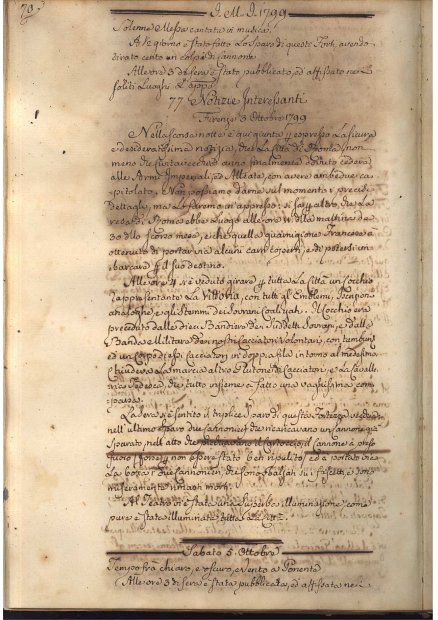 70.
I. M. I. 1799
Solenne Messa cantata in musica.
A 12 giorno è stato fatto lo sparo di questi Forti, avendo
tirato cento un colpi di cannone
Alle ore 3 di sera è stato pubblicato, ed affissato nei
soliti Luoghi
77 Notizie Interessanti
Firenze 3 Ottobre 1799
Nella scorsa notte è qui giunta espresso la sicura
e desideratissima notizia, che la Città di Roma, non
meno che Civitavecchia anno finalmente dovuto cedere
alle Armi Imperiali, ed Alleate, con avere ambedue ca-
pitolato. Non possiamo darne sul momento i precisi
Dettagli, ma lo faremo in appresso; si sa altro, che la
resa di Roma ebbe luogo alle ore 11 della mattina de
30 dello scorso mese, e che quella guarnigione Francese à
ottenuto di portar via alcuni carri coperti, e di potersi im-
barcare il suo destino.
Alle ore 4 si è veduto girare tutta la Città un Cocchio
rappresentante La Vittoria, con tutti gl'Emblemi,
analoghe, e gli Stemmi dei Sovrani Coalizati. Il Cocchio era
preceduto dalle dieci Bandiere dei suddetti Sovrani, e dalla
Banda Militare dei nostri Cacciatori Volontari, con tamburi
ed un Corpo di essi Cacciatori in doppia fila intorno al medesimo
Chiudeva la marcia altro Plutone di Cacciatori, e la Cavalle-
ria Tedesca, che tutto insieme à fatto una vaghissima com-
parsa.
La sera si è sentito il triplice sparo di questa Fortezza
nell'ultimo sparo due Cannonieri che ricaricavano un Cannone già
sparato, nell'atto che il cartoccio, il cannone à preso
fuoco (forse non essere stato ben ripulito) ed à portato via
la bocca i due Cannonieri, che sono sbalzati su i fossetti, e sono
miseramente rimasti morti.
Al Teatro vi è stata una superba illuminazione, come
pure è stata illuminata tutta la Città.
Sabato 5. Ottobre
Tempo fra chiaro, e oscuro, e vento a Ponente
Alle ore 3 di sera è stata pubblicata, ed affissata nei